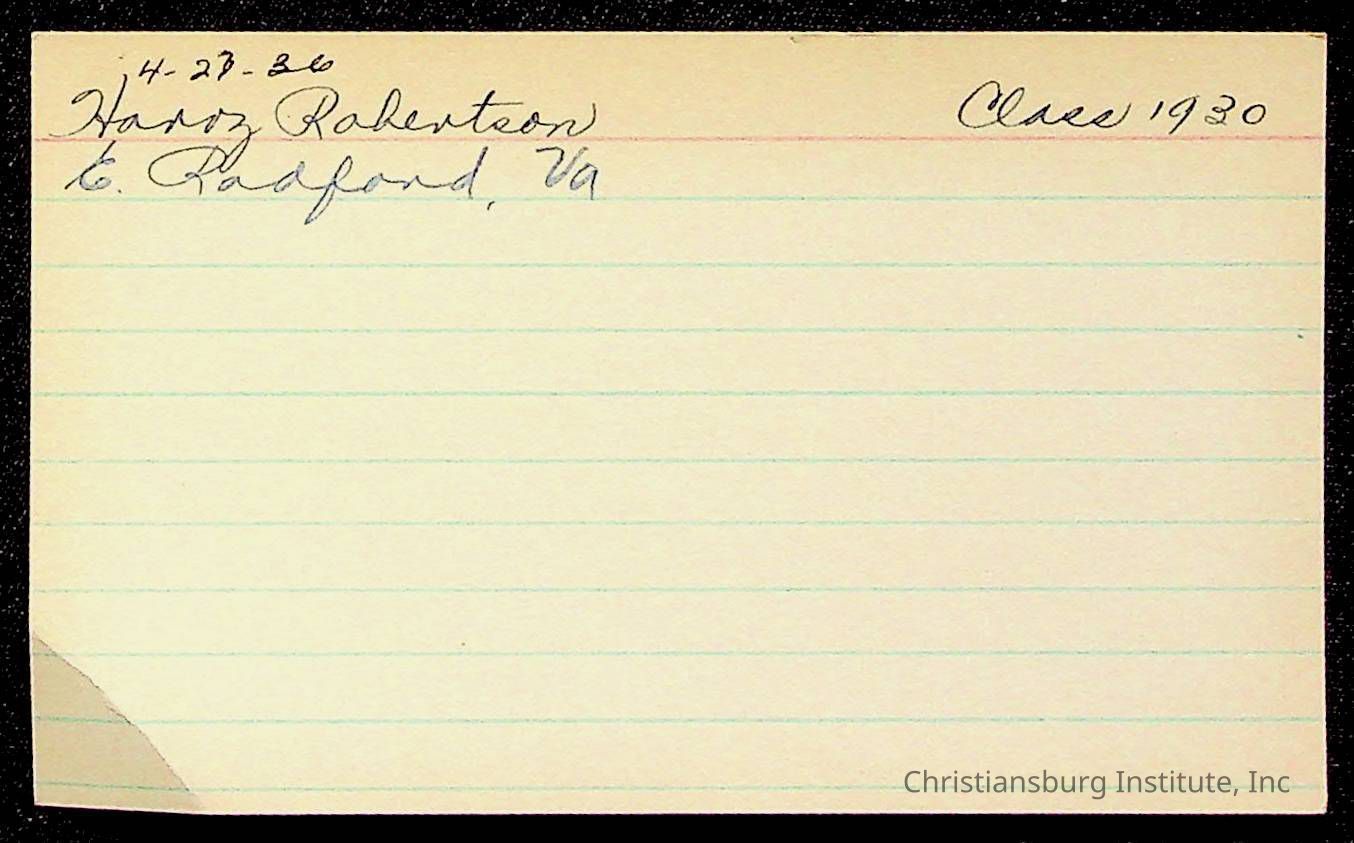 4-27-36
Harry Robertson Class 1930
E. Radford, Va
Christiansburg Institute, Inc